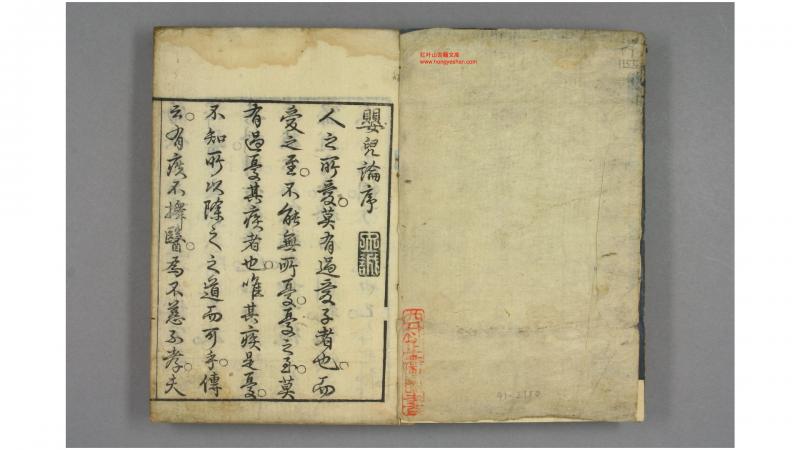 嬰兒論序
人之所愛莫有過愛子者也而
愛之至不能無所憂憂之至莫
有過憂其疾者也唯其疾是憂
不知所以除之之道而可乎傳
云有疾不擇醫為不慈不孝夫
红叶山古籍文库
www.hongyeshan.com
91-2750